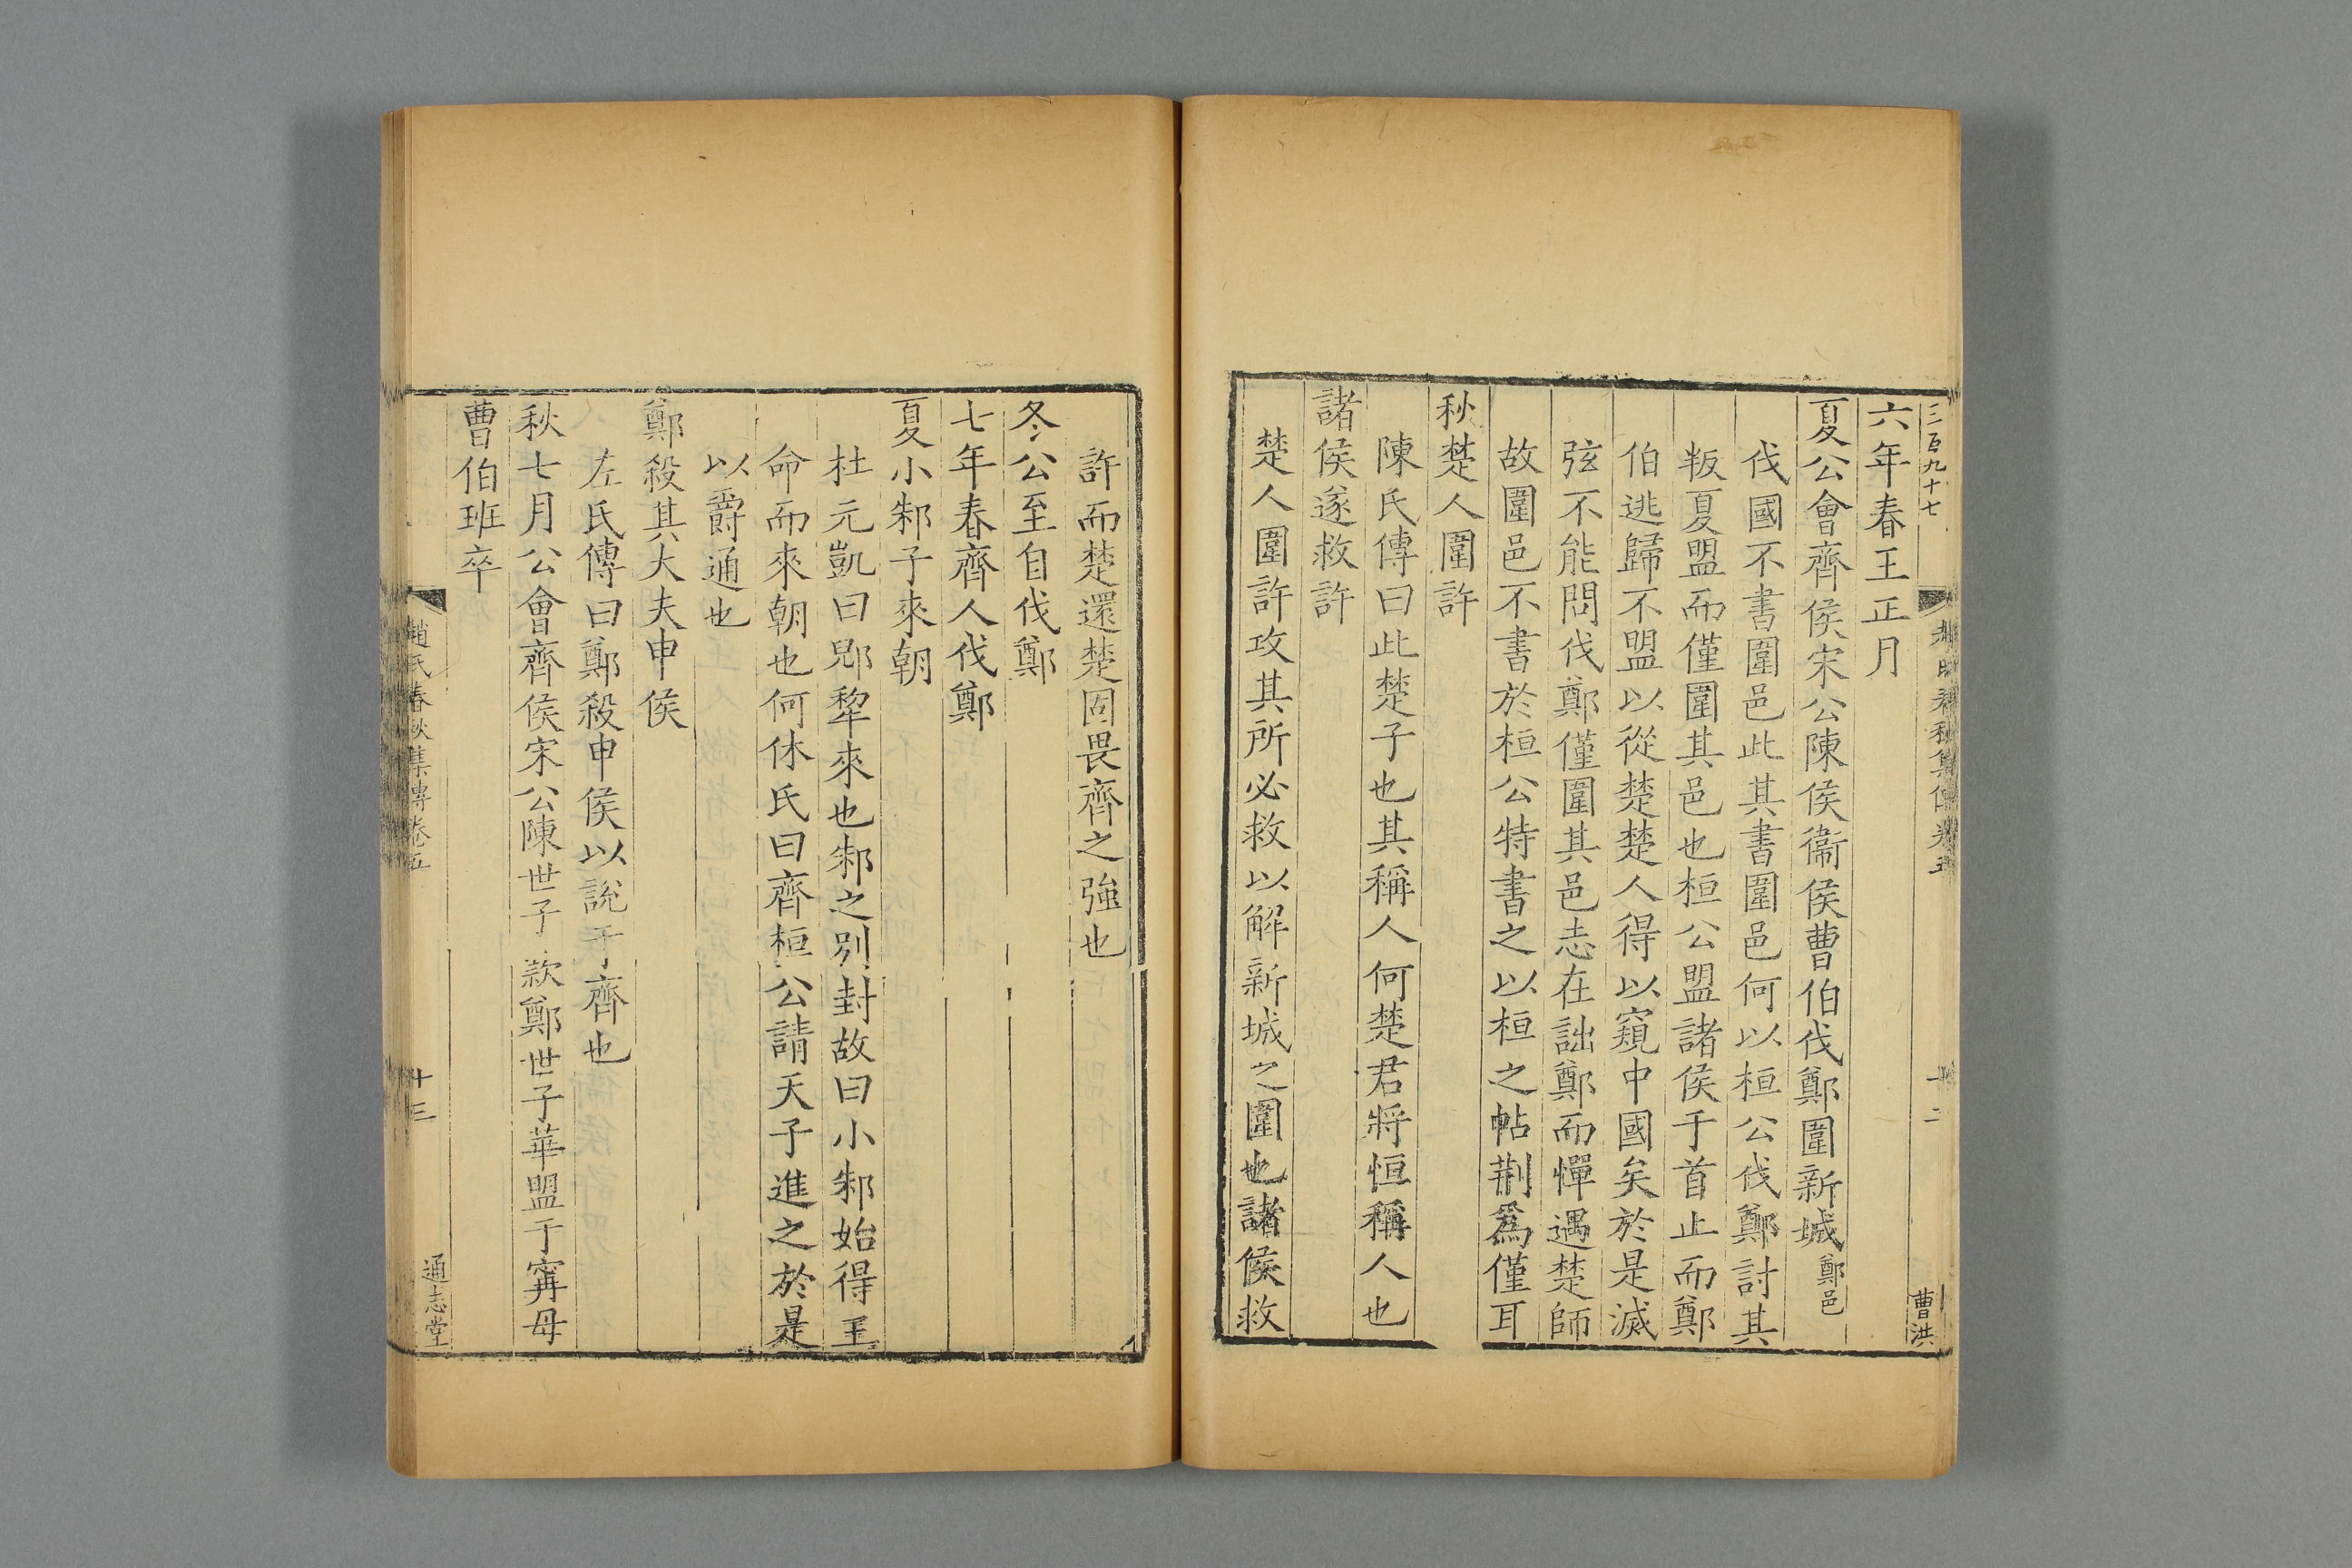 三百九十七
十二
曹洪
六年春王正月
夏公會齊侯宋公陳侯衞侯曹伯伐鄭圍新城鄭邑
伐國不書圍邑此其書圍邑何以桓公伐鄭討其
叛夏盟而僅圍其邑也桓公盟諸侯于首止而鄭
伯逃歸不盟以從楚楚人得以窺中國矣於是滅
弦不能問伐鄭僅圍其邑志在詘鄭而憚遇楚師
故圍邑不書於桓公特書之以桓之帖荆爲僅耳
秋楚人圍許
陳氏傳曰此楚子也其稱人何楚君將恒稱人也
諸侯遂救許
楚人圍許攻其所必救以解新城之圍也諸侯救
許而楚還楚固畏齊之強也
冬公至自伐鄭
七年春齊人伐鄭
夏小邾子來朝
杜元凱曰郳犂來也邾之别封故曰小邾始得王
命而來朝也何休氏曰齊桓公請天子進之於是
以爵通也
鄭殺其大夫申侯
左氏傳曰鄭殺申侯以說于齊也
秋七月公會齊侯宋公陳世子款鄭世子華盟于甯母
曹伯班卒
趙氏春秋集傳卷五
十三
通志堂